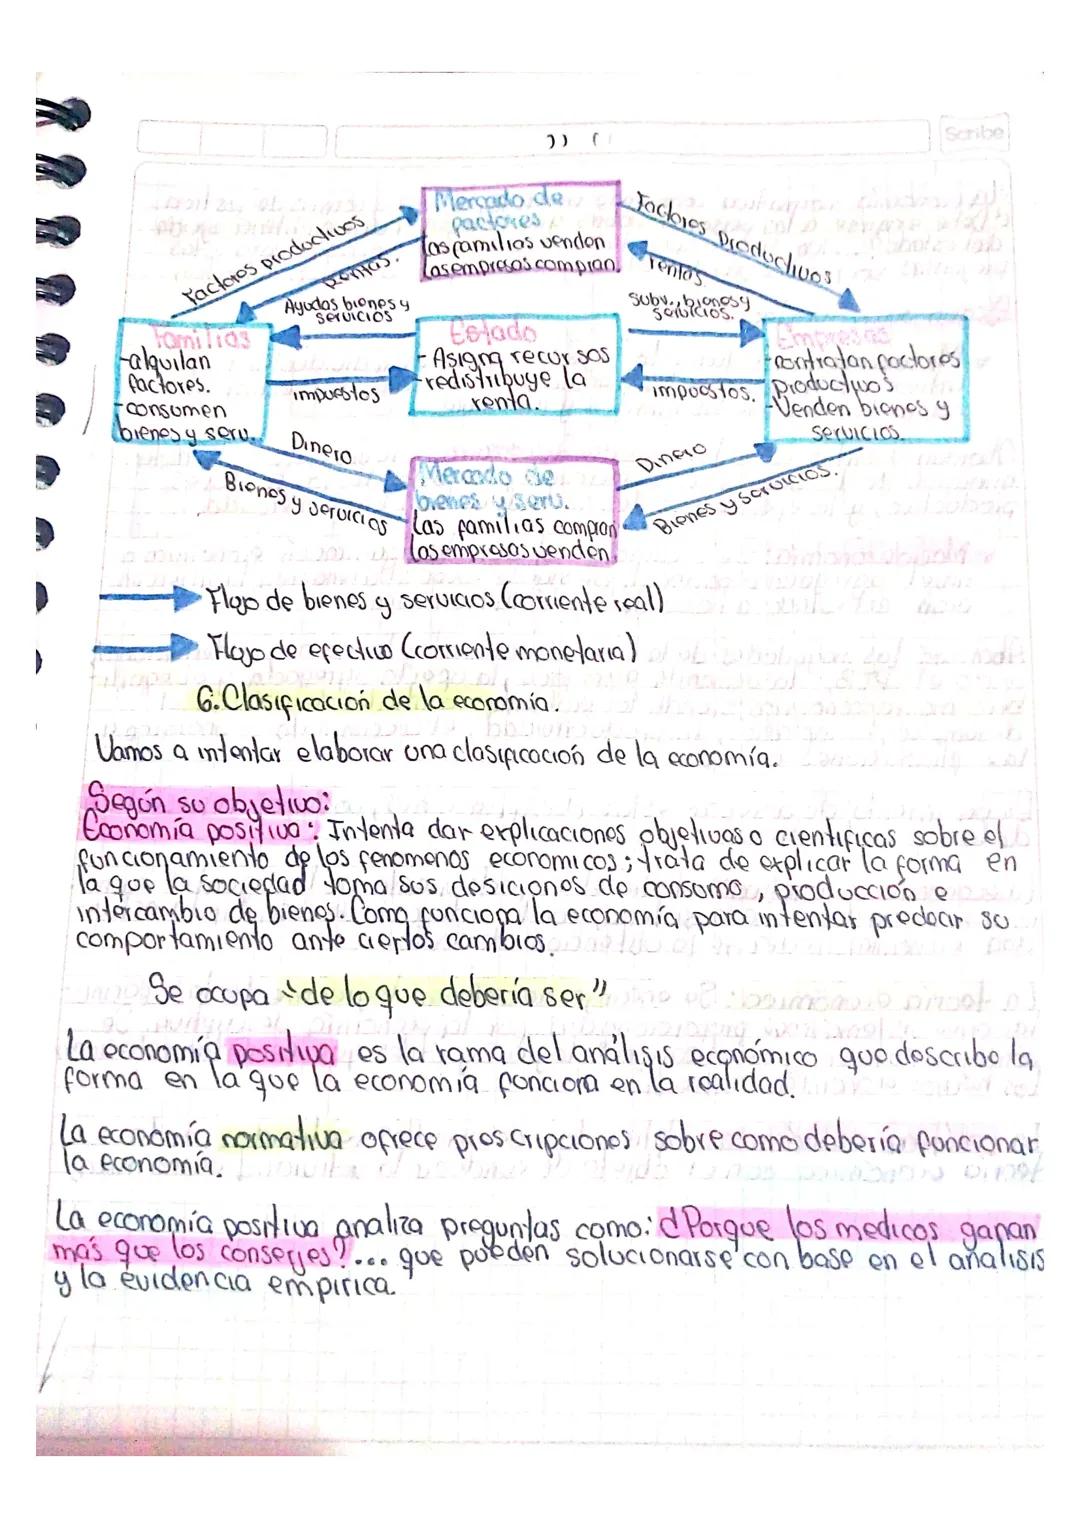 Scribe
Mercado de
factores
las familias venden
las empresas compran.
Factores productivos
Rentas.
Factores Productivos
rentas.
Ayudas bienes y
servicios
subv., bienes y
servicios.
Familias
-alquilan
factores.
-consumen
bienes y serv.
Estado
- Asigna recursos
- redistribuye la
renta.
Empresas
-contratan factores
productivos
-Venden bienes y
servicios.
impuestos
impuestos.
Dinero
Bienes y servicios
Dinero
Bienes y servicios.
Mercado de
bienes y serv.
Las familias compran
las empresas venden.
Flujo de bienes y servicios (corriente real)
Flujo de efectivo (corriente monetaria)
6. Clasificación de la economía.
Vamos a intentar elaborar una clasificación de la economía.
Según su objetivo:
Economía positiva: Intenta dar explicaciones objetivas o cientificas sobre el
funcionamiento de los fenomenos economicos; trata de explicar la forma en
la que la sociedad toma sus desiciones de consumo, producción e
intercambio de bienes. Como funciona la economía para intentar predecir su
comportamiento ante ciertos cambios.
Se ocupa "de lo que debería ser"
La economía positiva es la rama del análisis económico que describe la
forma en la que la economía funciona en la realidad.
La economía normativa ofrece prescripciones sobre como debería funcionar
la economía.
La economía positiva analiza preguntas como: ¿Porque los medicos ganan
más que los conserjes?... que pueden solucionarse con base en el análisis
y la evidencia empirica.